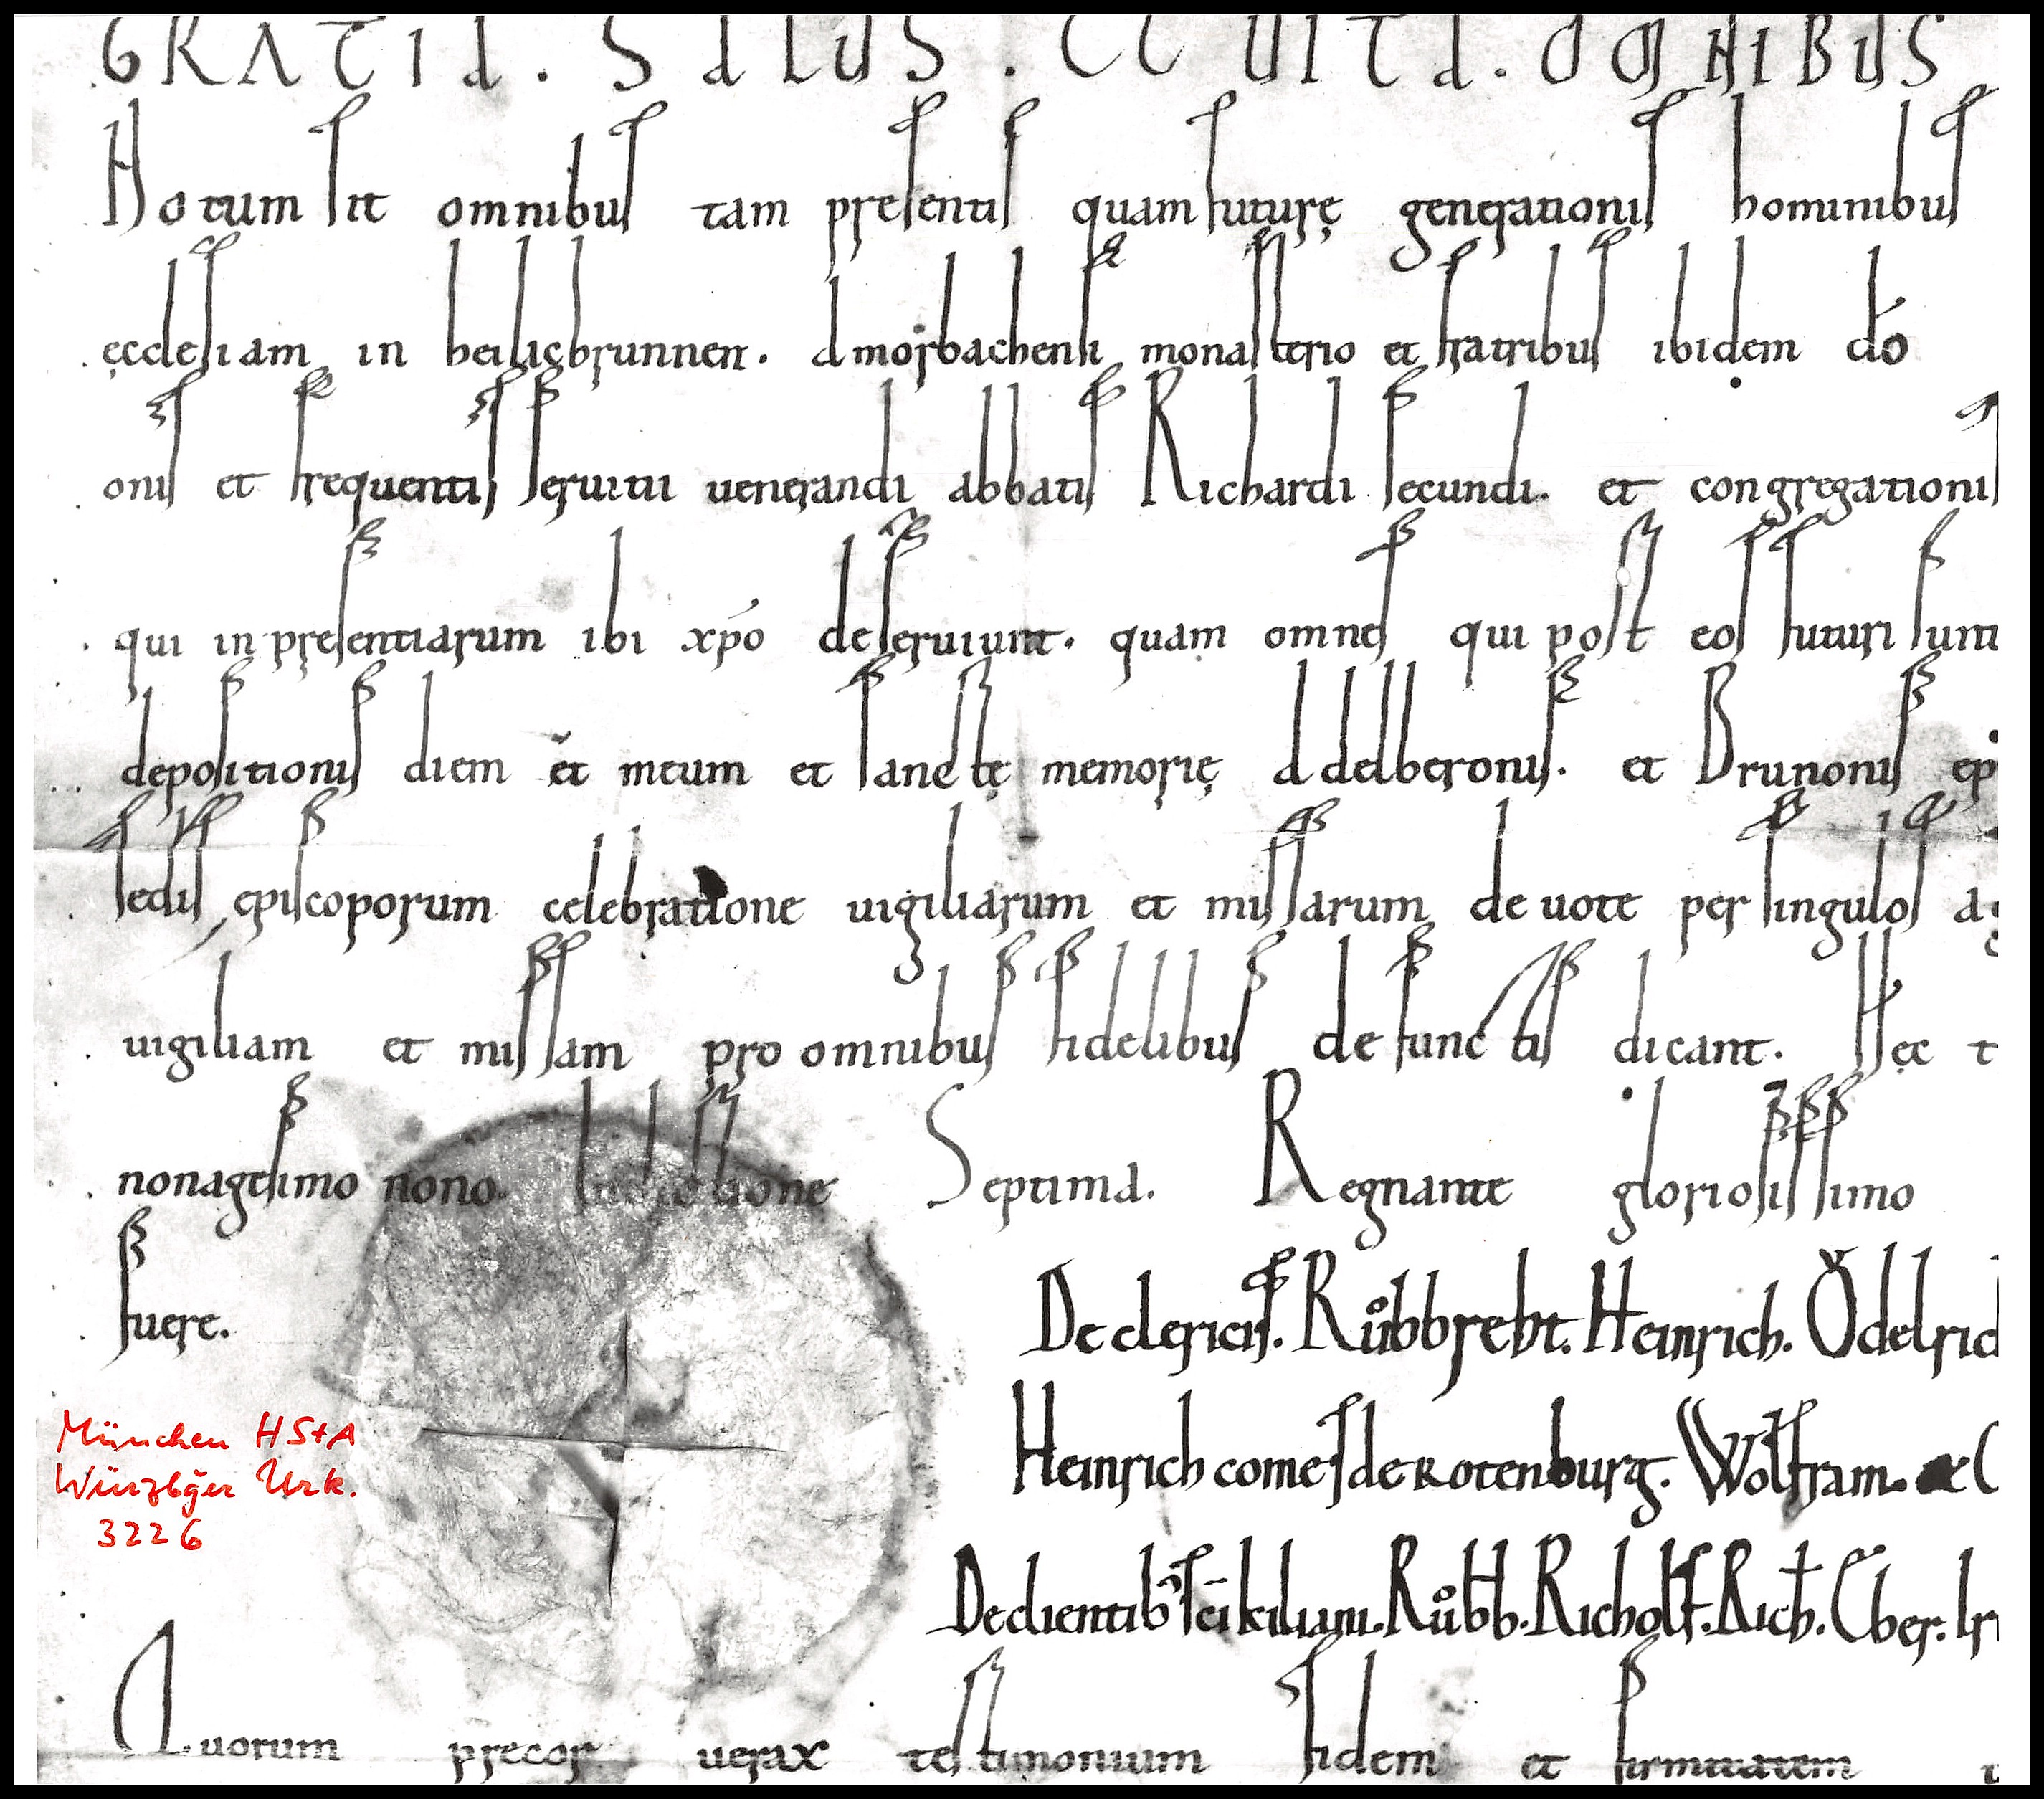 GRATIA . SALUS . ET UITA . OMNIBUS
Notum sit omnibus tam presentis quam future̜ generationis hominibus
ęcclesiam in heilicbrunnen. Amorbachensi monasterio et fratribus ibidem dō
onis et frequentis seruitii uenerandi abbatis Richardi secundi. et congregationis
qui in presentiarum ibi xp̄o deseruiunt. quam omnes qui post eos futuri sunt
depositionis diem et meum et sanctę memorię Adelberonis. et Brunonis ep
sedis episcoporum celebratione uigiliarum et missarum deuote per singulos ag
uigiliam et missam pro omnibus fidelibus defunctis dicant. Hęc t
nonagesimo nono. Indictione Septima. Regnante gloriosissimo
fuere.
De clericis. Růbbreht. Heinrich. Ǒdelric
Heinrich comes de Rotenburg. Wolfram. &
De clientib' sc̄i kiliani. Růbb. Richolf. Rich. Eber.
Quorum precor uerax testimonium fidem et firmitatem
München HStA
Würzbger Urk.
3226